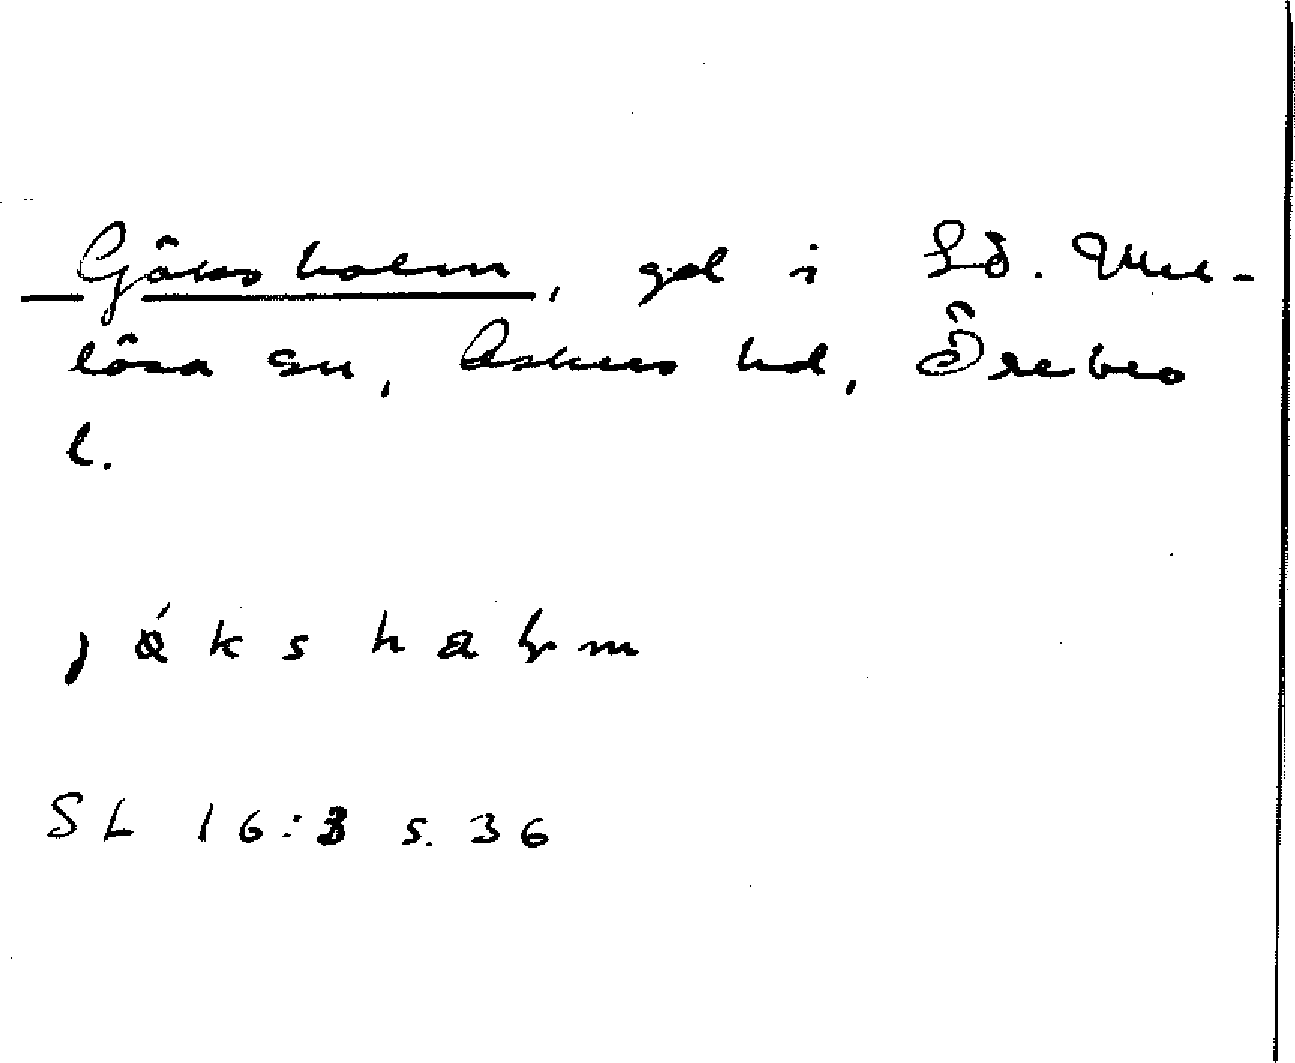 Göksholm, gd i Sö. Mel-
lösa sn, Askers hd, Örebro
l.
j ö́ k s h a l m
SL 16:3 s. 36